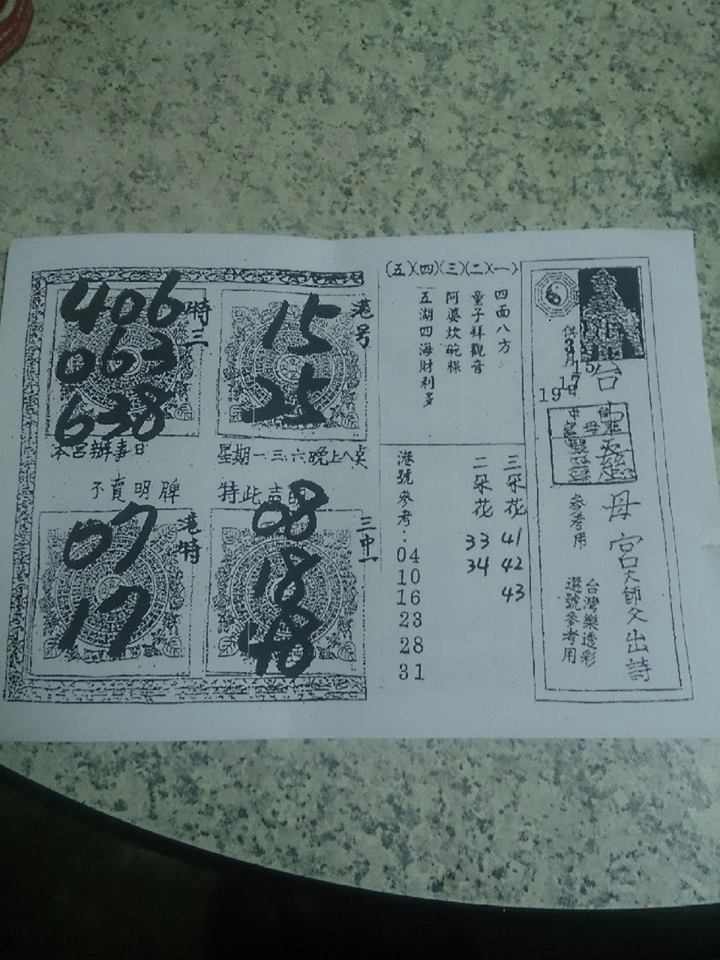 台靈慈母宮大師父出詩
供
3月15
17日
19
參考用
台灣樂透彩
選號參考用
(五)(四)(三)(二)(一)
四面八方
童子拜觀音
阿婆炊碗粿
五湖四海財利多
三朵花 41 42 43
二朵花 33 34
港號參考:
04
10
16
23
28
31
港号
15
25
特二
406
063
638
本宮辦事日 星期一三六晚上八点
不賣明牌 特此声明
三中一
08
18
48
港特
07
17